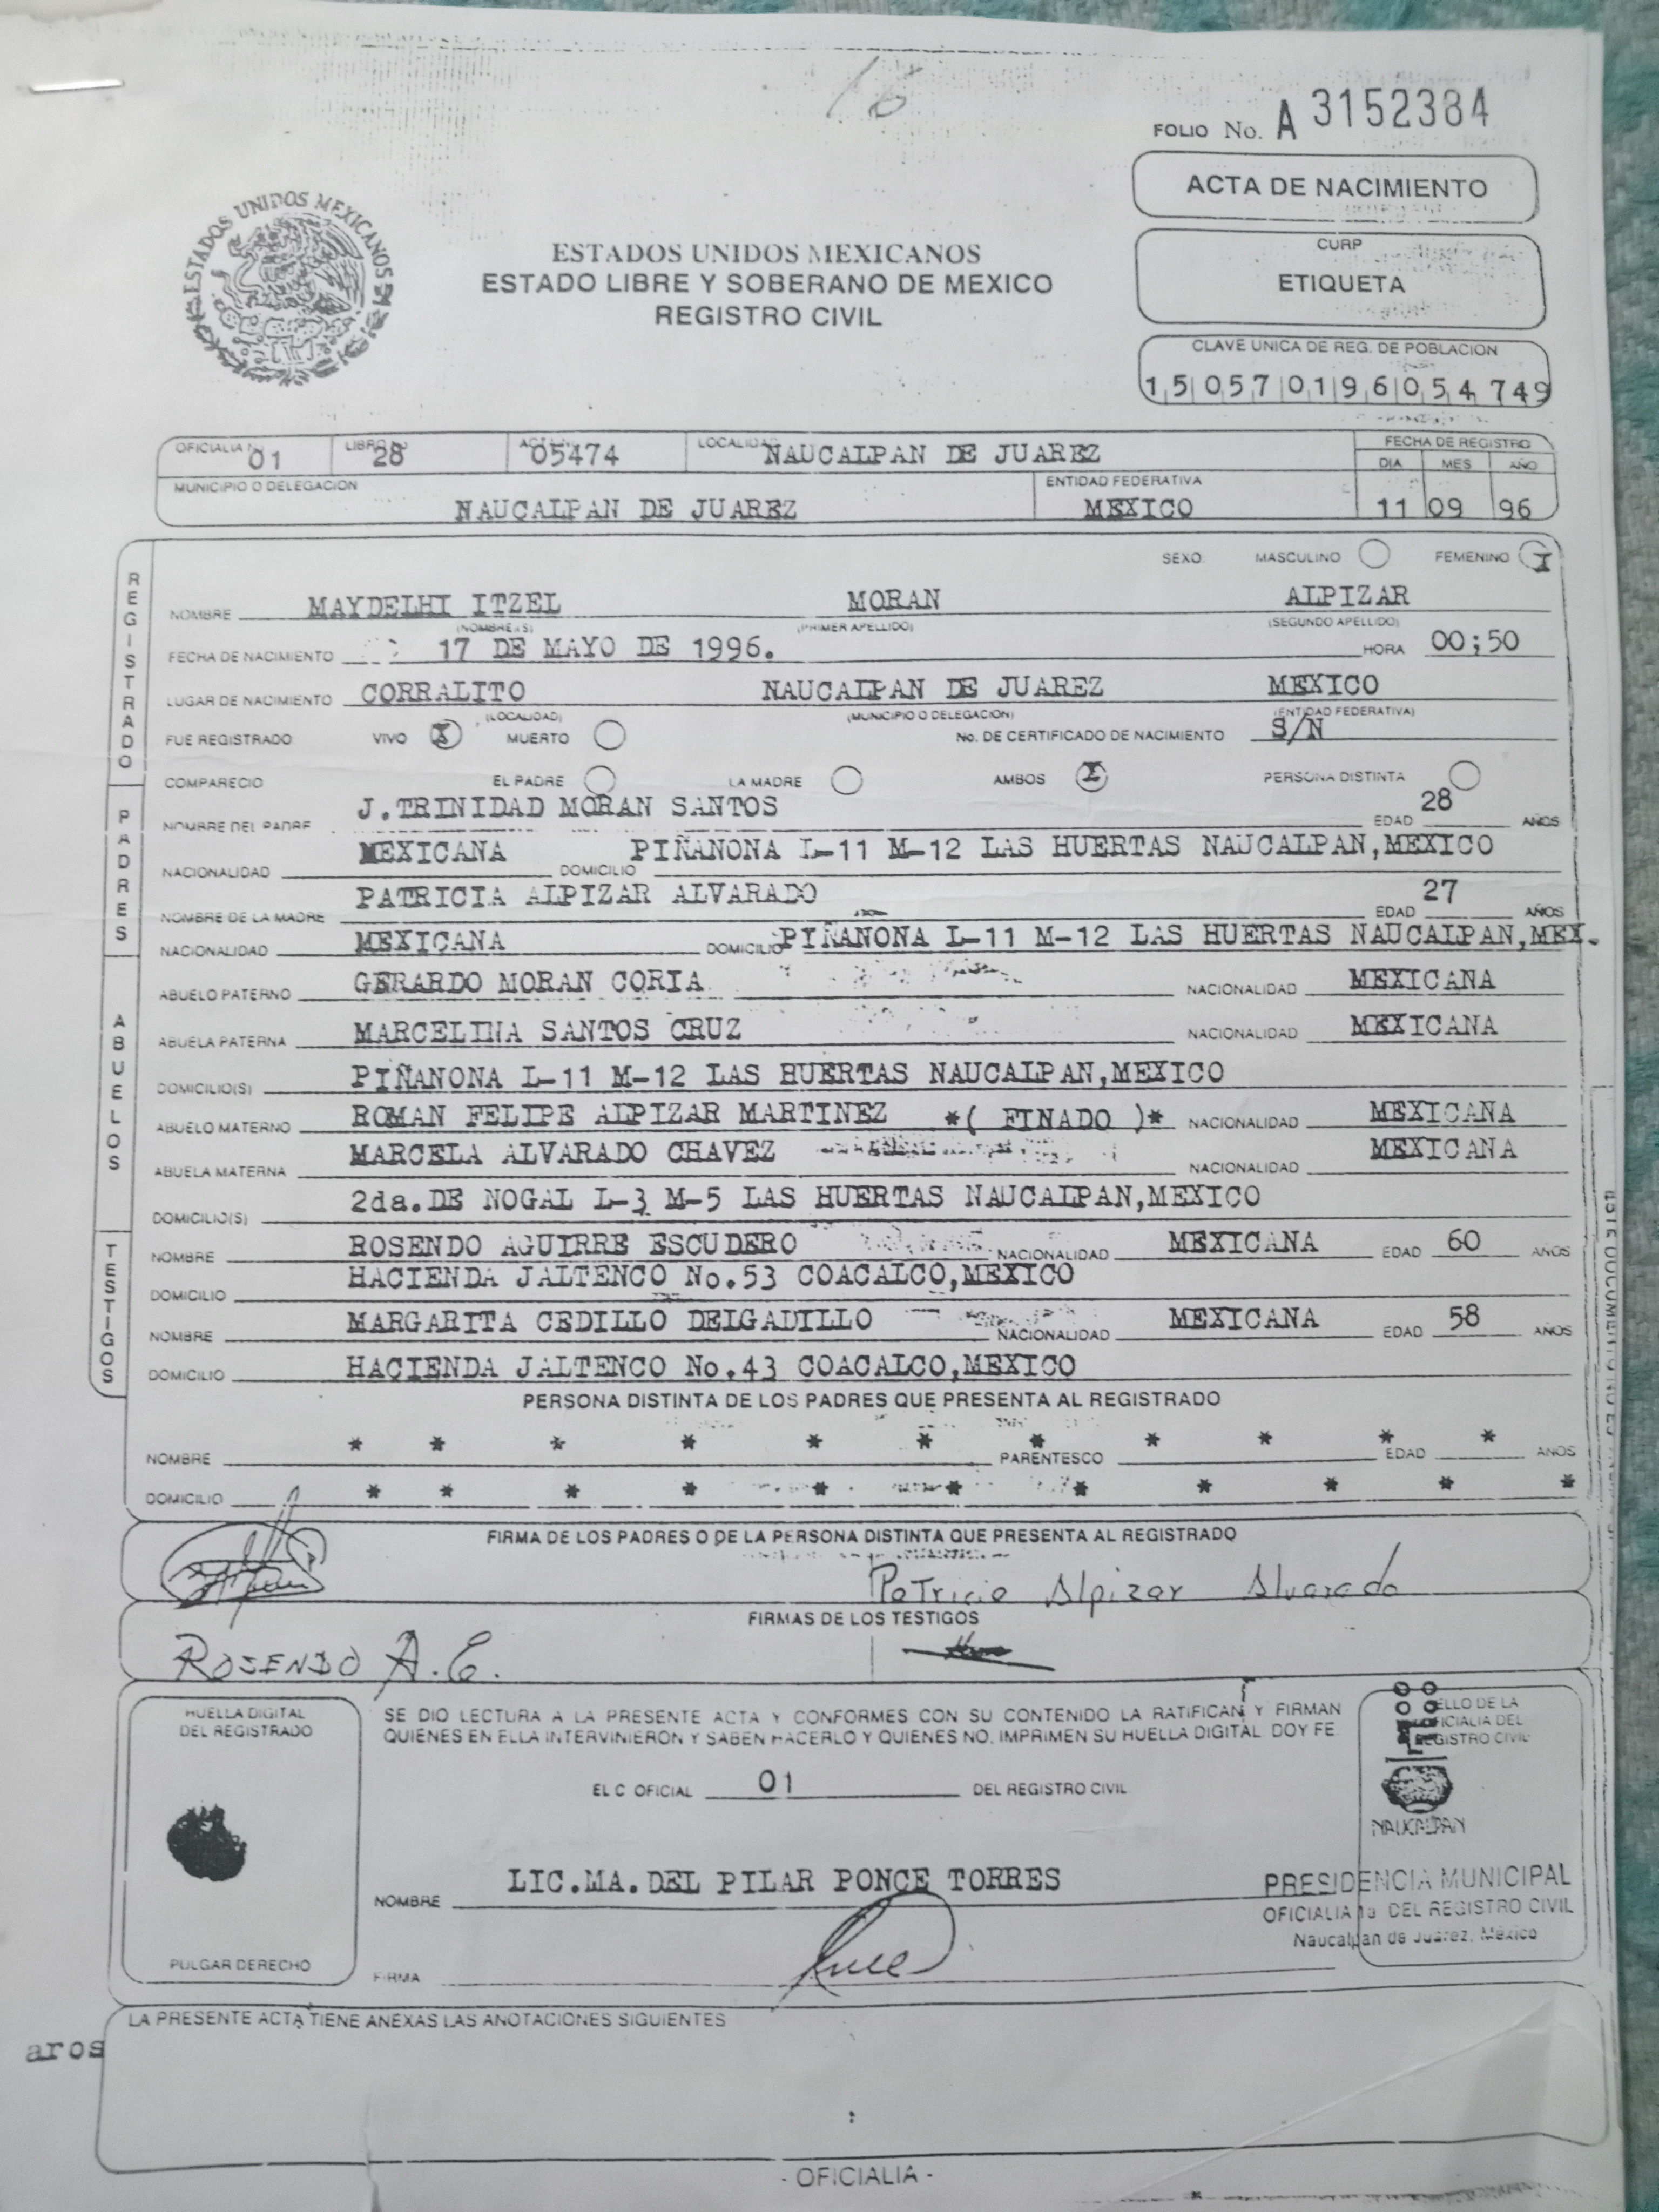 16
FOLIO No. A 3152384
ACTA DE NACIMIENTO
ESTADOS UNIDOS MEXICANOS
ESTADOS UNIDOS MEXICANOS
ESTADO LIBRE Y SOBERANO DE MEXICO
REGISTRO CIVIL
CURP
ETIQUETA
CLAVE UNICA DE REG. DE POBLACION
15 057 01 96 054749
OFICIALIA No. 01 LIBRO No. 28 ACTA No. 05474 LOCALIDAD NAUCALPAN DE JUAREZ FECHA DE REGISTRO
DIA MES AÑO
MUNICIPIO O DELEGACION ENTIDAD FEDERATIVA
NAUCALPAN DE JUAREZ MEXICO 11 09 96
REGISTRADO
SEXO. MASCULINO FEMENINO X
NOMBRE MAYDELHI ITZEL MORAN ALPIZAR
(NOMBRE(S) (PRIMER APELLIDO) (SEGUNDO APELLIDO)
FECHA DE NACIMIENTO 17 DE MAYO DE 1996. HORA 00;50
LUGAR DE NACIMIENTO CORRALITO NAUCALPAN DE JUAREZ MEXICO
(LOCALIDAD) (MUNICIPIO O DELEGACION) (ENTIDAD FEDERATIVA)
FUE REGISTRADO VIVO X MUERTO No. DE CERTIFICADO DE NACIMIENTO S/N
COMPARECIO EL PADRE LA MADRE AMBOS X PERSONA DISTINTA
PADRES
NOMBRE DEL PADRE J.TRINIDAD MORAN SANTOS EDAD 28 AÑOS
NACIONALIDAD MEXICANA DOMICILIO PIÑANONA L-11 M-12 LAS HUERTAS NAUCALPAN,MEXICO
NOMBRE DE LA MADRE PATRICIA ALPIZAR ALVARADO EDAD 27 AÑOS
NACIONALIDAD MEXICANA DOMICILIO PIÑANONA L-11 M-12 LAS HUERTAS NAUCALPAN,MEX.
ABUELOS
ABUELO PATERNO GERARDO MORAN CORIA NACIONALIDAD MEXICANA
ABUELA PATERNA MARCELINA SANTOS CRUZ NACIONALIDAD MEXICANA
DOMICILIO(S) PIÑANONA L-11 M-12 LAS HUERTAS NAUCALPAN,MEXICO
ABUELO MATERNO ROMAN FELIPE ALPIZAR MARTINEZ *( FINADO )* NACIONALIDAD MEXICANA
ABUELA MATERNA MARCELA ALVARADO CHAVEZ NACIONALIDAD MEXICANA
DOMICILIO(S) 2da.DE NOGAL L-3 M-5 LAS HUERTAS NAUCALPAN,MEXICO
TESTIGOS
NOMBRE ROSENDO AGUIRRE ESCUDERO NACIONALIDAD MEXICANA EDAD 60 AÑOS
DOMICILIO HACIENDA JALTENCO No.53 COACALCO,MEXICO
NOMBRE MARGARITA CEDILLO DELGADILLO NACIONALIDAD MEXICANA EDAD 58 AÑOS
DOMICILIO HACIENDA JALTENCO No.43 COACALCO,MEXICO
PERSONA DISTINTA DE LOS PADRES QUE PRESENTA AL REGISTRADO
NOMBRE * * * * * * * PARENTESCO * * * EDAD * AÑOS
DOMICILIO * * * * * * * * * * *
FIRMA DE LOS PADRES O DE LA PERSONA DISTINTA QUE PRESENTA AL REGISTRADO
Patricia Alpizar Alvarado
FIRMAS DE LOS TESTIGOS
ROSENDO A.E.
HUELLA DIGITAL
DEL REGISTRADO
PULGAR DERECHO
SE DIO LECTURA A LA PRESENTE ACTA Y CONFORMES CON SU CONTENIDO LA RATIFICAN Y FIRMAN
QUIENES EN ELLA INTERVINIERON Y SABEN HACERLO Y QUIENES NO, IMPRIMEN SU HUELLA DIGITAL. DOY FE.
EL C. OFICIAL 01 DEL REGISTRO CIVIL
NOMBRE LIC.MA.DEL PILAR PONCE TORRES
FIRMA
SELLO DE LA
OFICIALIA DEL
REGISTRO CIVIL
NAUCALPAN
PRESIDENCIA MUNICIPAL
OFICIALIA 1a DEL REGISTRO CIVIL
Naucalpan de Juárez, México
LA PRESENTE ACTA TIENE ANEXAS LAS ANOTACIONES SIGUIENTES
aros
- OFICIALIA -